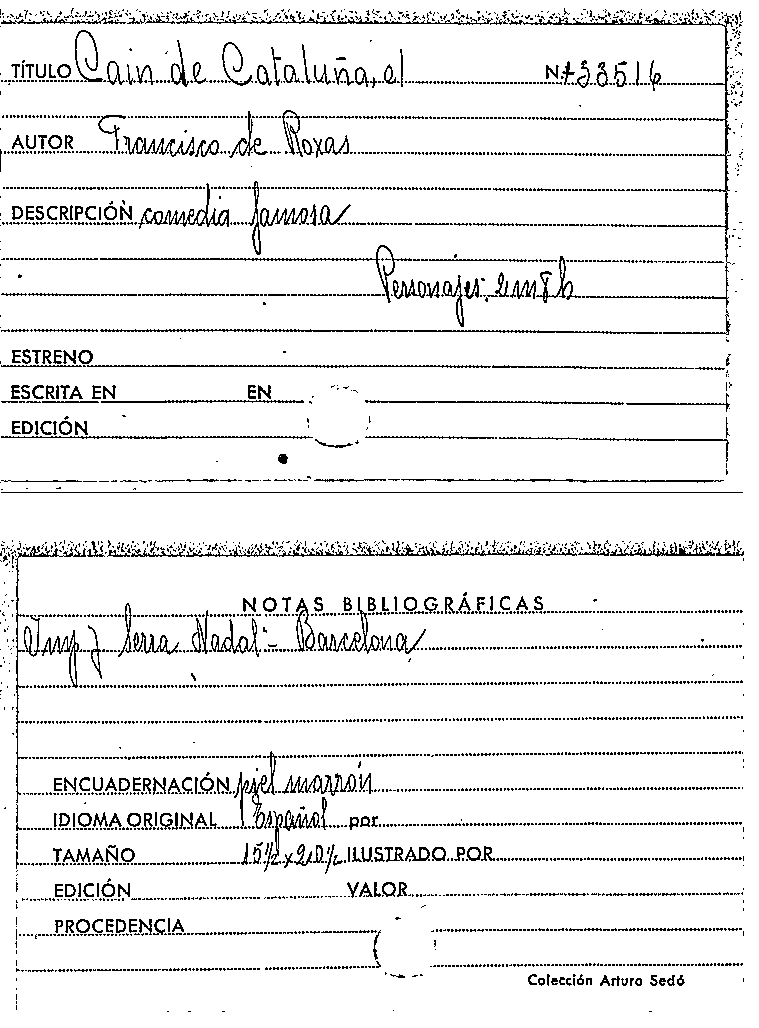 TÍTULO Cain de Cataluña, el Nº 33516
AUTOR Francisco de Roxas
DESCRIPCIÓN comedia famosa
Personajes: 2 m 8 h
ESTRENO
ESCRITA EN EN
EDICIÓN
NOTAS BIBLIOGRÁFICAS
Imp J Serra Nadal - Barcelona
ENCUADERNACIÓN piel marrón
IDIOMA ORIGINAL Español por
TAMAÑO 15½ x 20½ ILUSTRADO POR
EDICIÓN VALOR
PROCEDENCIA
Colección Arturo Sedó